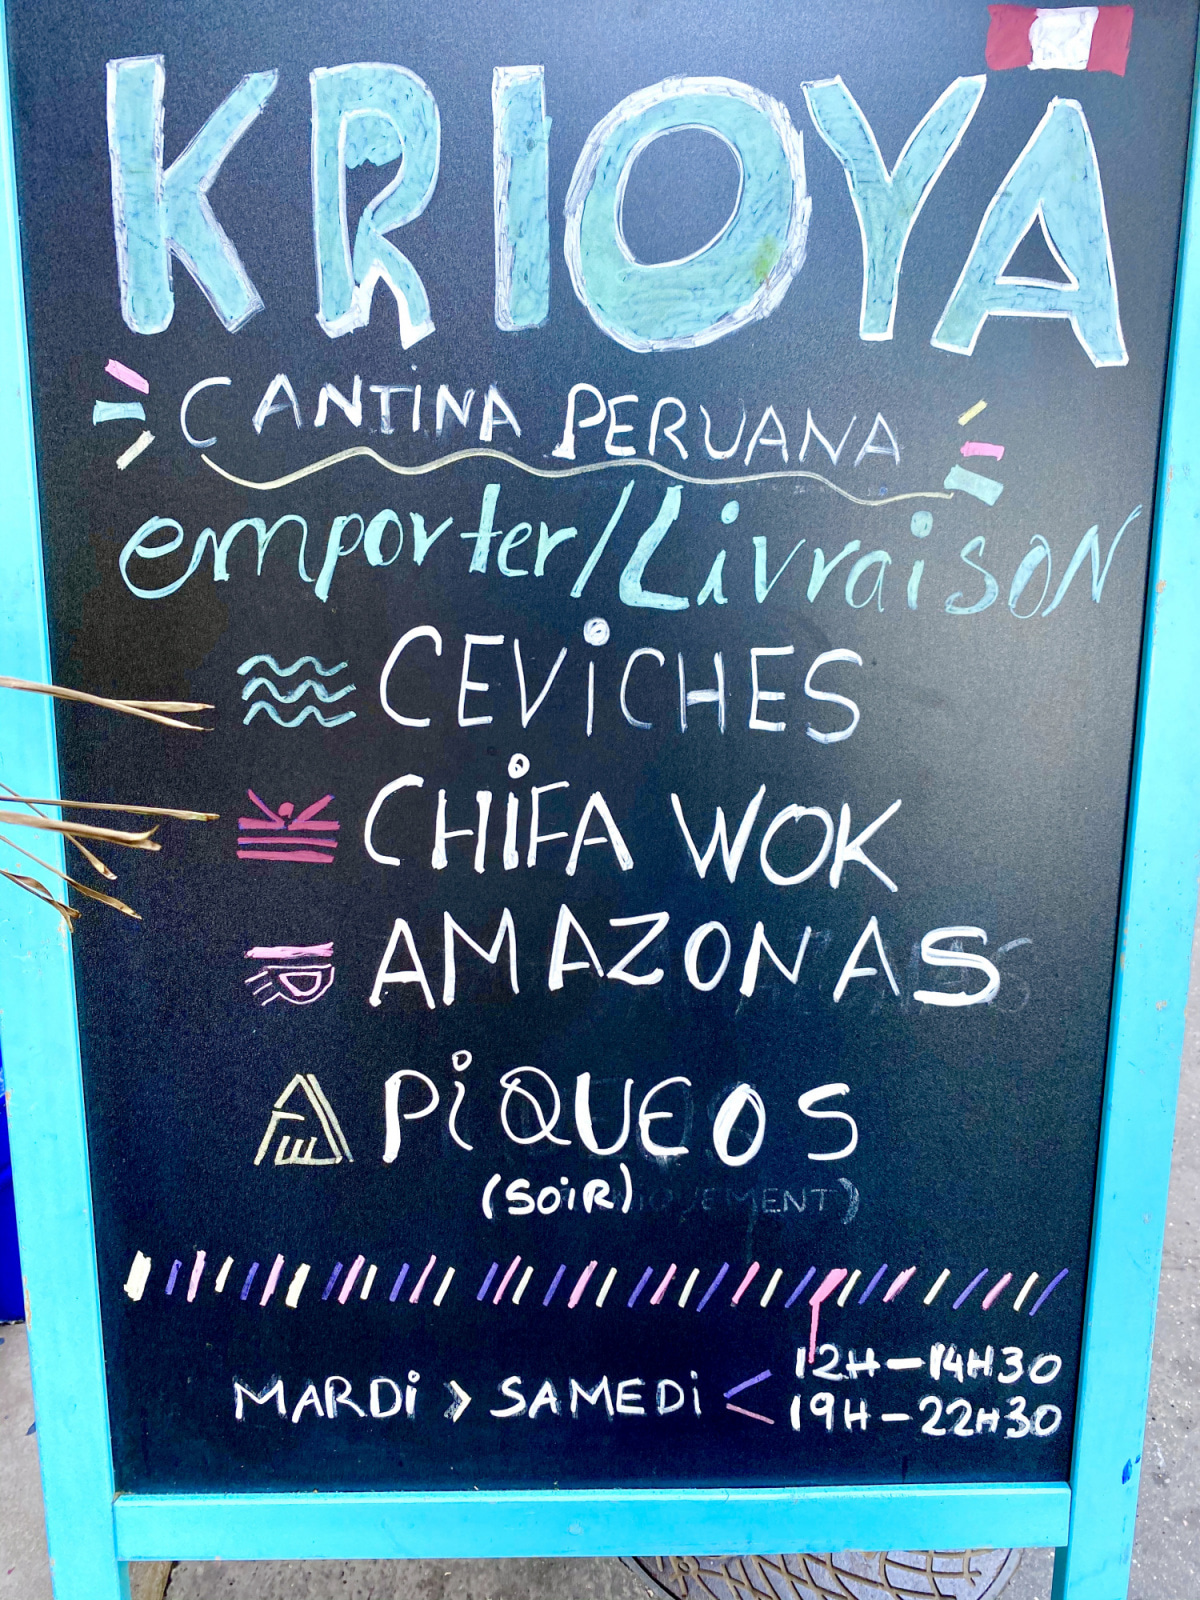 KRIOYA
CANTINA PERUANA
emporter/Livraison
CEViCHES
CHiFA WOK
AMAZONAS
PiQUEOS
(SOiR)
MARDi > SAMEDi < 12H-14H30
19H-22H30